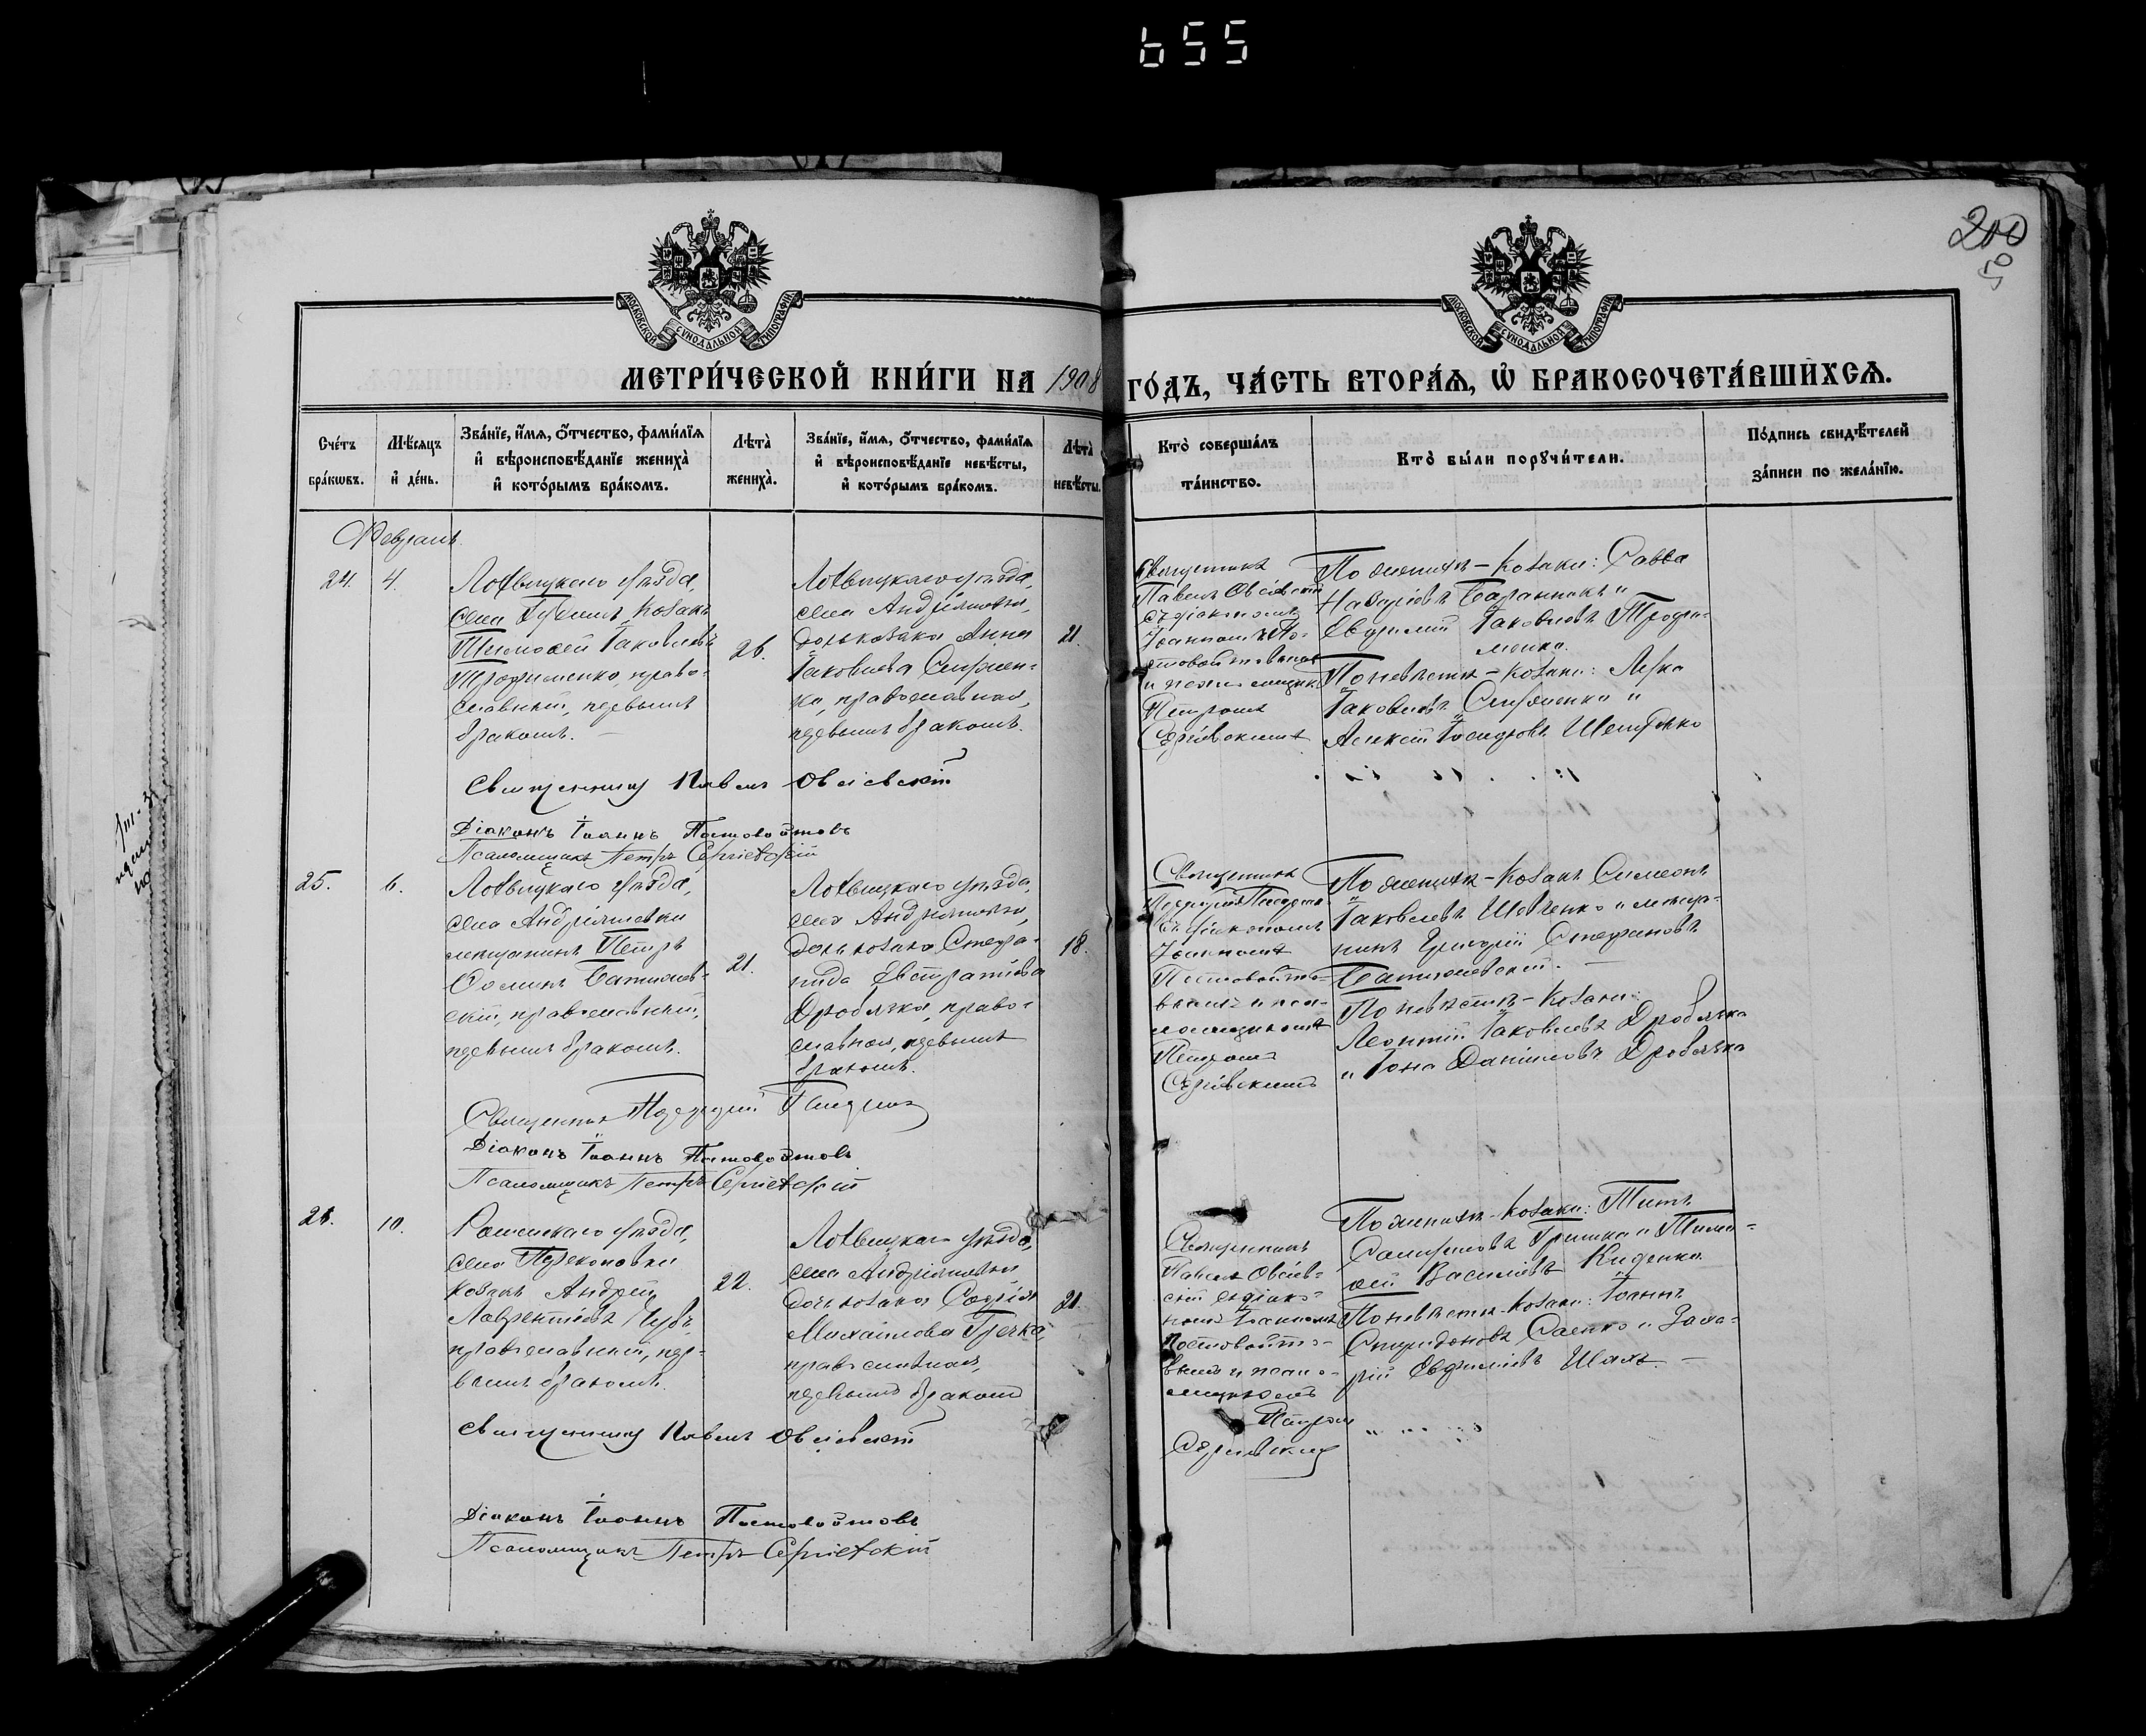 655
200
50
МОСКОВСКОЙ СѴНОДАЛЬНОЙ ТИПОГРАФІИ
МОСКОВСКОЙ СѴНОДАЛЬНОЙ ТИПОГРАФІИ
МЕТРИ́ЧЕСКОЙ КНИ́ГИ НА 1908 ГО́ДЪ, ЧА́СТЬ ВТОРА́Я, Ѽ БРАКОСОЧЕТА́ВШИХСЯ.
Сче́тъ бра́кѡвъ.
Мѣ́сяцъ и҆ де́нь.
Зва́нїе, и҆́мя, ѻ҆́тчество, фами́лїя и҆ вѣроисповѣ́данїе жениха̀ и҆ кото́рымъ бра́комъ.
Лѣ́та̀ жениха̀.
Зва́нїе, и҆́мя, ѻ҆́тчество, фами́лїя и҆ вѣроисповѣ́данїе невѣ́сты, и҆ кото́рымъ бра́комъ.
Лѣ́та̀ невѣ́сты.
Кто̀ соверша́лъ та́инство.
Кто̀ бы́ли порꙋчи́тели.
По́дпись свидѣ́телей за́писи по жела́нїю.
Февраль
24.
4.
Лохвицкаго уѣзда,
села
козакъ
Тимоѳей Іаковлевъ
Трофименко, право-
славный, первымъ
бракомъ.
26.
Лохвицкаго уѣзда,
села Андріяшевки,
дочь козака Анна
Іаковлева Сифиен-
ко, православная,
первымъ бракомъ.
21.
Священникъ
Павелъ Овсіевскій
съ діакономъ
Іоанномъ По-
стовойтовымъ
и псаломщик.
Петромъ
Сергіевскимъ
По женихѣ – козаки: Савва
Назаріевъ Баранникъ и
Евфимій Іаковлевъ Трофи-
менко.
По невѣстѣ – козаки: Лука
Іаковлевъ и
Алексій Іосифовъ
Священникъ Павелъ Овсіевскій
Діаконъ Іоаннъ Постовойтовъ
Псаломщикъ Петръ Сергіевскій
25.
6.
Лохвицкаго уѣзда,
села Андріяшевки
мещанинъ Петръ
Ѳоминъ Батиевс-
кій, православный,
первымъ бракомъ.
21.
Лохвицкаго уѣзда,
села Андріяшевки,
дочь козака Стефа-
нида Евстратіева
Дробязка, право-
славная, первымъ
бракомъ.
18.
Священникъ
съ діакономъ
Іоанномъ
Постовойто-
вымъ и пса-
ломщикомъ
Петромъ
Сергіевскимъ
По женихѣ – козакъ Симеонъ
Іаковлевъ Шевченко и меща-
нинъ Григорій Стефановъ
По невѣстѣ – козаки:
Леонтій Іаковлевъ Дробязка
и Іона Даніиловъ Дробязка
Священникъ
Діаконъ Іоаннъ Постовойтовъ
Псаломщикъ Петръ Сергіевскій
26.
10.
Роменскаго уѣзда,
села Перекоповки
козакъ Андрей
Лаврентіевъ
православный, пер-
вымъ бракомъ.
22.
Лохвицкаго уѣзда,
села Андріяшевки
дочь козака Софія
Михаилова Гречка,
православная,
первымъ бракомъ
21.
Священникъ
Павелъ Овсіев-
скій съ діако-
номъ Іоанномъ
Постовойто-
вымъ и псало-
мщикомъ
Петромъ
Сергіевским
По женихѣ – козаки: Титъ
Гришка и Тимо-
ѳей Василіевъ Киденко.
По невѣстѣ – козаки: Іоаннъ
Спиридоновъ Саенко и Заха-
рій Евфиміевъ Шахъ. –
Священникъ Павелъ Овсіевскій
Діаконъ Іоаннъ Постовойтовъ
Псаломщикъ Петръ Сергіевскій